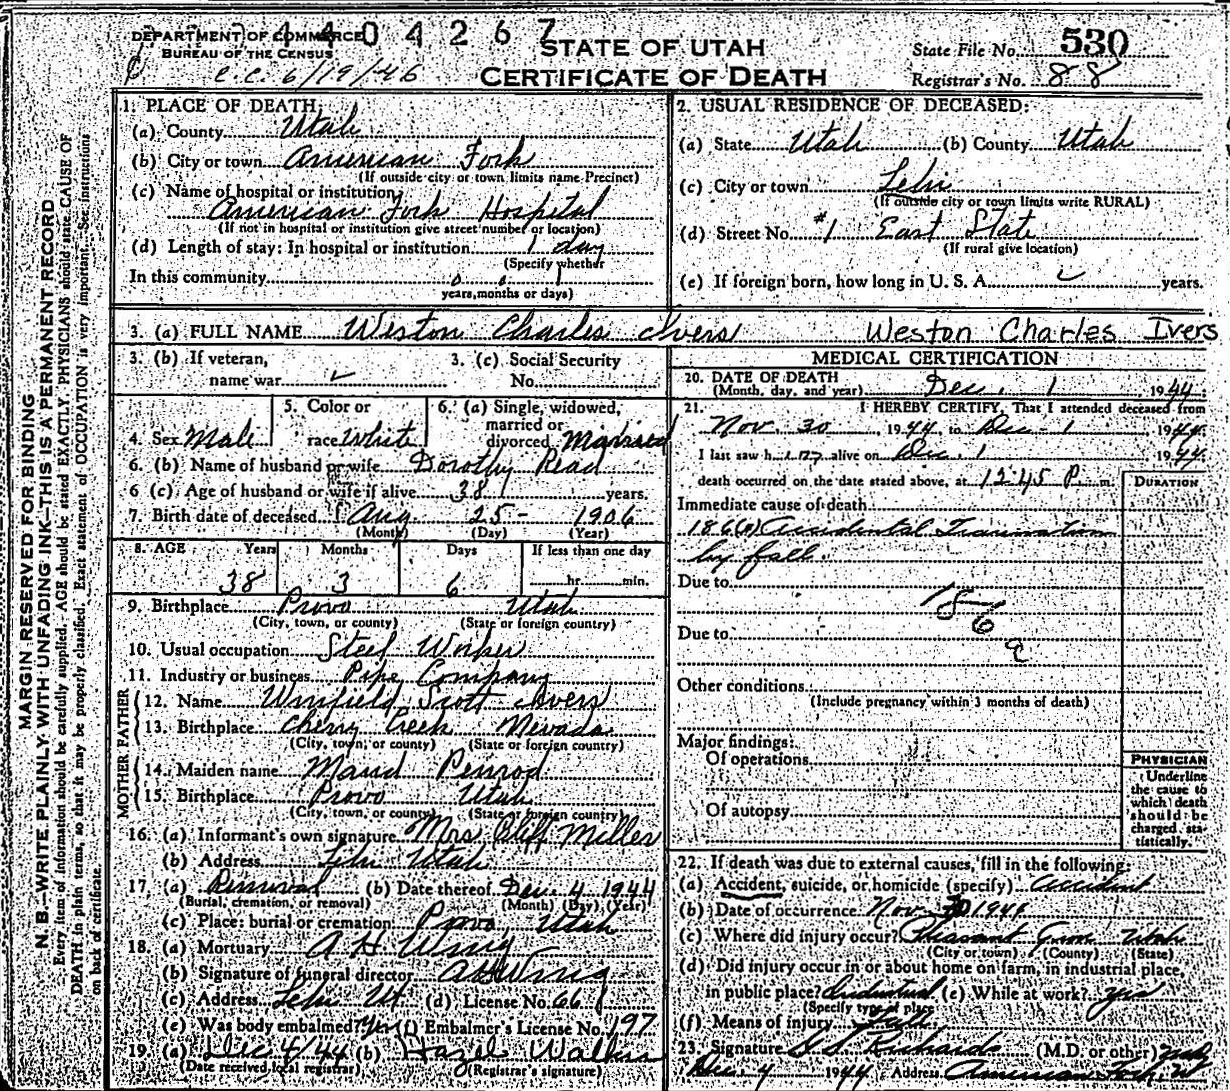 DEPARTMENT OF COMMERCE
BUREAU OF THE CENSUS
404267
C.C. 6/19/46
STATE OF UTAH
CERTIFICATE OF DEATH
State File No. 530
Registrar's No. 88
MARGIN RESERVED FOR BINDING
N. B.—WRITE PLAINLY WITH UNFADING INK—THIS IS A PERMANENT RECORD
Every item of information should be carefully supplied. AGE should be stated EXACTLY. PHYSICIANS should state CAUSE OF
DEATH in plain terms, so that it may be properly classified. Exact statement of OCCUPATION is very important. See instructions
on back of certificate.
1. PLACE OF DEATH:
(a) County Utah
(b) City or town American Fork
(If outside city or town limits name Precinct)
(c) Name of hospital or institution
American Fork Hospital
(If not in hospital or institution give street number or location)
(d) Length of stay: In hospital or institution 1 day
(Specify whether
In this community 0 0 1
years, months or days)
2. USUAL RESIDENCE OF DECEASED:
(a) State Utah (b) County Utah
(c) City or town Lehi
(If outside city or town limits write RURAL)
(d) Street No. #1 East State
(If rural give location)
(e) If foreign born, how long in U. S. A. years.
3. (a) FULL NAME Weston Charles Ivers Weston Charles Ivers
3. (b) If veteran,
name war
3. (c) Social Security
No.
4. Sex Male
5. Color or
race White
6. (a) Single, widowed,
married or
divorced Married
6. (b) Name of husband or wife Dorothy Read
6 (c) Age of husband or wife if alive 38 years.
7. Birth date of deceased Aug 25- 1906
(Month) (Day) (Year)
8. AGE Years Months Days If less than one day
38 3 6 hr. min.
9. Birthplace Provo Utah
(City, town, or county) (State or foreign country)
10. Usual occupation Steel Worker
11. Industry or business Pipe Company
FATHER
12. Name Winfield Scott Ivers
13. Birthplace Cherry Creek Nevada
(City, town, or county) (State or foreign country)
MOTHER
14. Maiden name Maud Penrod
15. Birthplace Provo Utah
(City, town, or county) (State or foreign country)
16. (a) Informant's own signature Mrs Cliff Miller
(b) Address Lehi Utah
17. (a) Removal (b) Date thereof Dec. 4 1944
(Burial, cremation, or removal) (Month) (Day) (Year)
(c) Place: burial or cremation Provo, Utah
18. (a) Mortuary A. H. Wing
(b) Signature of funeral director A H Wing
(c) Address Lehi Ut. (d) License No. 66
(e) Was body embalmed? Yes (f) Embalmer's License No. 197
19. (a) Dec 4/44 (b) Hazel
(Date received local registrar) (Registrar's signature)
MEDICAL CERTIFICATION
20. DATE OF DEATH
(Month, day, and year) Dec. 1 1944
21. I HEREBY CERTIFY, That I attended deceased from
Nov. 30, 1944 to Dec - 1 1944
I last saw him alive on Dec. 1 1944
death occurred on the date stated above, at 12:45 P. m.
DURATION
Immediate cause of death
186(a) Accidental
by fall.
Due to
186 a
Due to
Other conditions
(Include pregnancy within 3 months of death)
Major findings:
Of operations
Of autopsy
PHYSICIAN
Underline
the cause to
which death
should be
charged sta-
tistically.
22. If death was due to external causes, fill in the following:
(a) Accident, suicide, or homicide (specify) Accident
(b) Date of occurrence Nov. 30 1944
(c) Where did injury occur? Pleasant Grove Utah
(City or town) (County) (State)
(d) Did injury occur in or about home on farm, in industrial place,
in public place? Industrial (e) While at work? yes
(Specify type of place)
(f) Means of injury
23. Signature Richards (M.D. or other)
Dec. 4 1944 Address American Fork, Ut